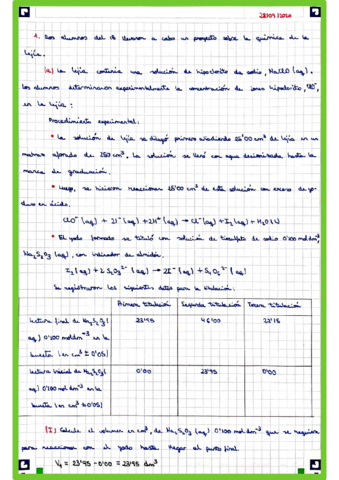 28/09/2020
1. Dos alumnos del IB llevaron a cabo un proyecto sobre la química de la
lejía.
(a) La lejía contenía una solución de hipoclorito de sodio, NaClO (aq).
Los alumnos determinaron experimentalmente la concentración de iones hipoclorito, ClO⁻,
en la lejía:
Procedimiento experimental:
• La solución de lejía se diluyó primero añadiendo 25'00 cm³ de lejía en un
matraz aforado de 250 cm³. La solución se llenó con agua desionizada hasta la
marca de graduación.
• Luego, se hicieron reaccionar 25'00 cm³ de esta solución con exceso de yo-
duro en ácido.
ClO⁻ (aq) + 2I⁻ (aq) + 2H⁺ (aq) → Cl⁻ (aq) + I₂ (aq) + H₂O (l)
• El yodo formado se tituló con solución de tiosulfato de sodio 0'100 mol dm⁻³,
Na₂S₂O₃ (aq), con indicador de almidón.
I₂ (aq) + 2 S₂O₃²⁻ (aq) → 2I⁻ (aq) + S₄O₆²⁻ (aq)
Se registraron los siguientes datos para la titulación:
Primera titulación Segunda titulación Tercera titulación
Lectura final de Na₂S₂O₃ ( 23'95 46'00 22'15
aq) 0'100 mol dm⁻³ en la
bureta (en cm³ ± 0'05)
Lectura inicial de Na₂S₂O₃ ( 0'00 23'95 0'00
aq) 0'100 mol dm⁻³ en la
bureta (en cm³ ± 0'05)
(I) Calcule el volumen en cm³, de Na₂S₂O₃ (aq) 0'100 mol dm⁻³ que se requiere
para reaccionar con el yodo hasta llegar al punto final.
V₁ = 23'95 - 0'00 = 23'95 dm³